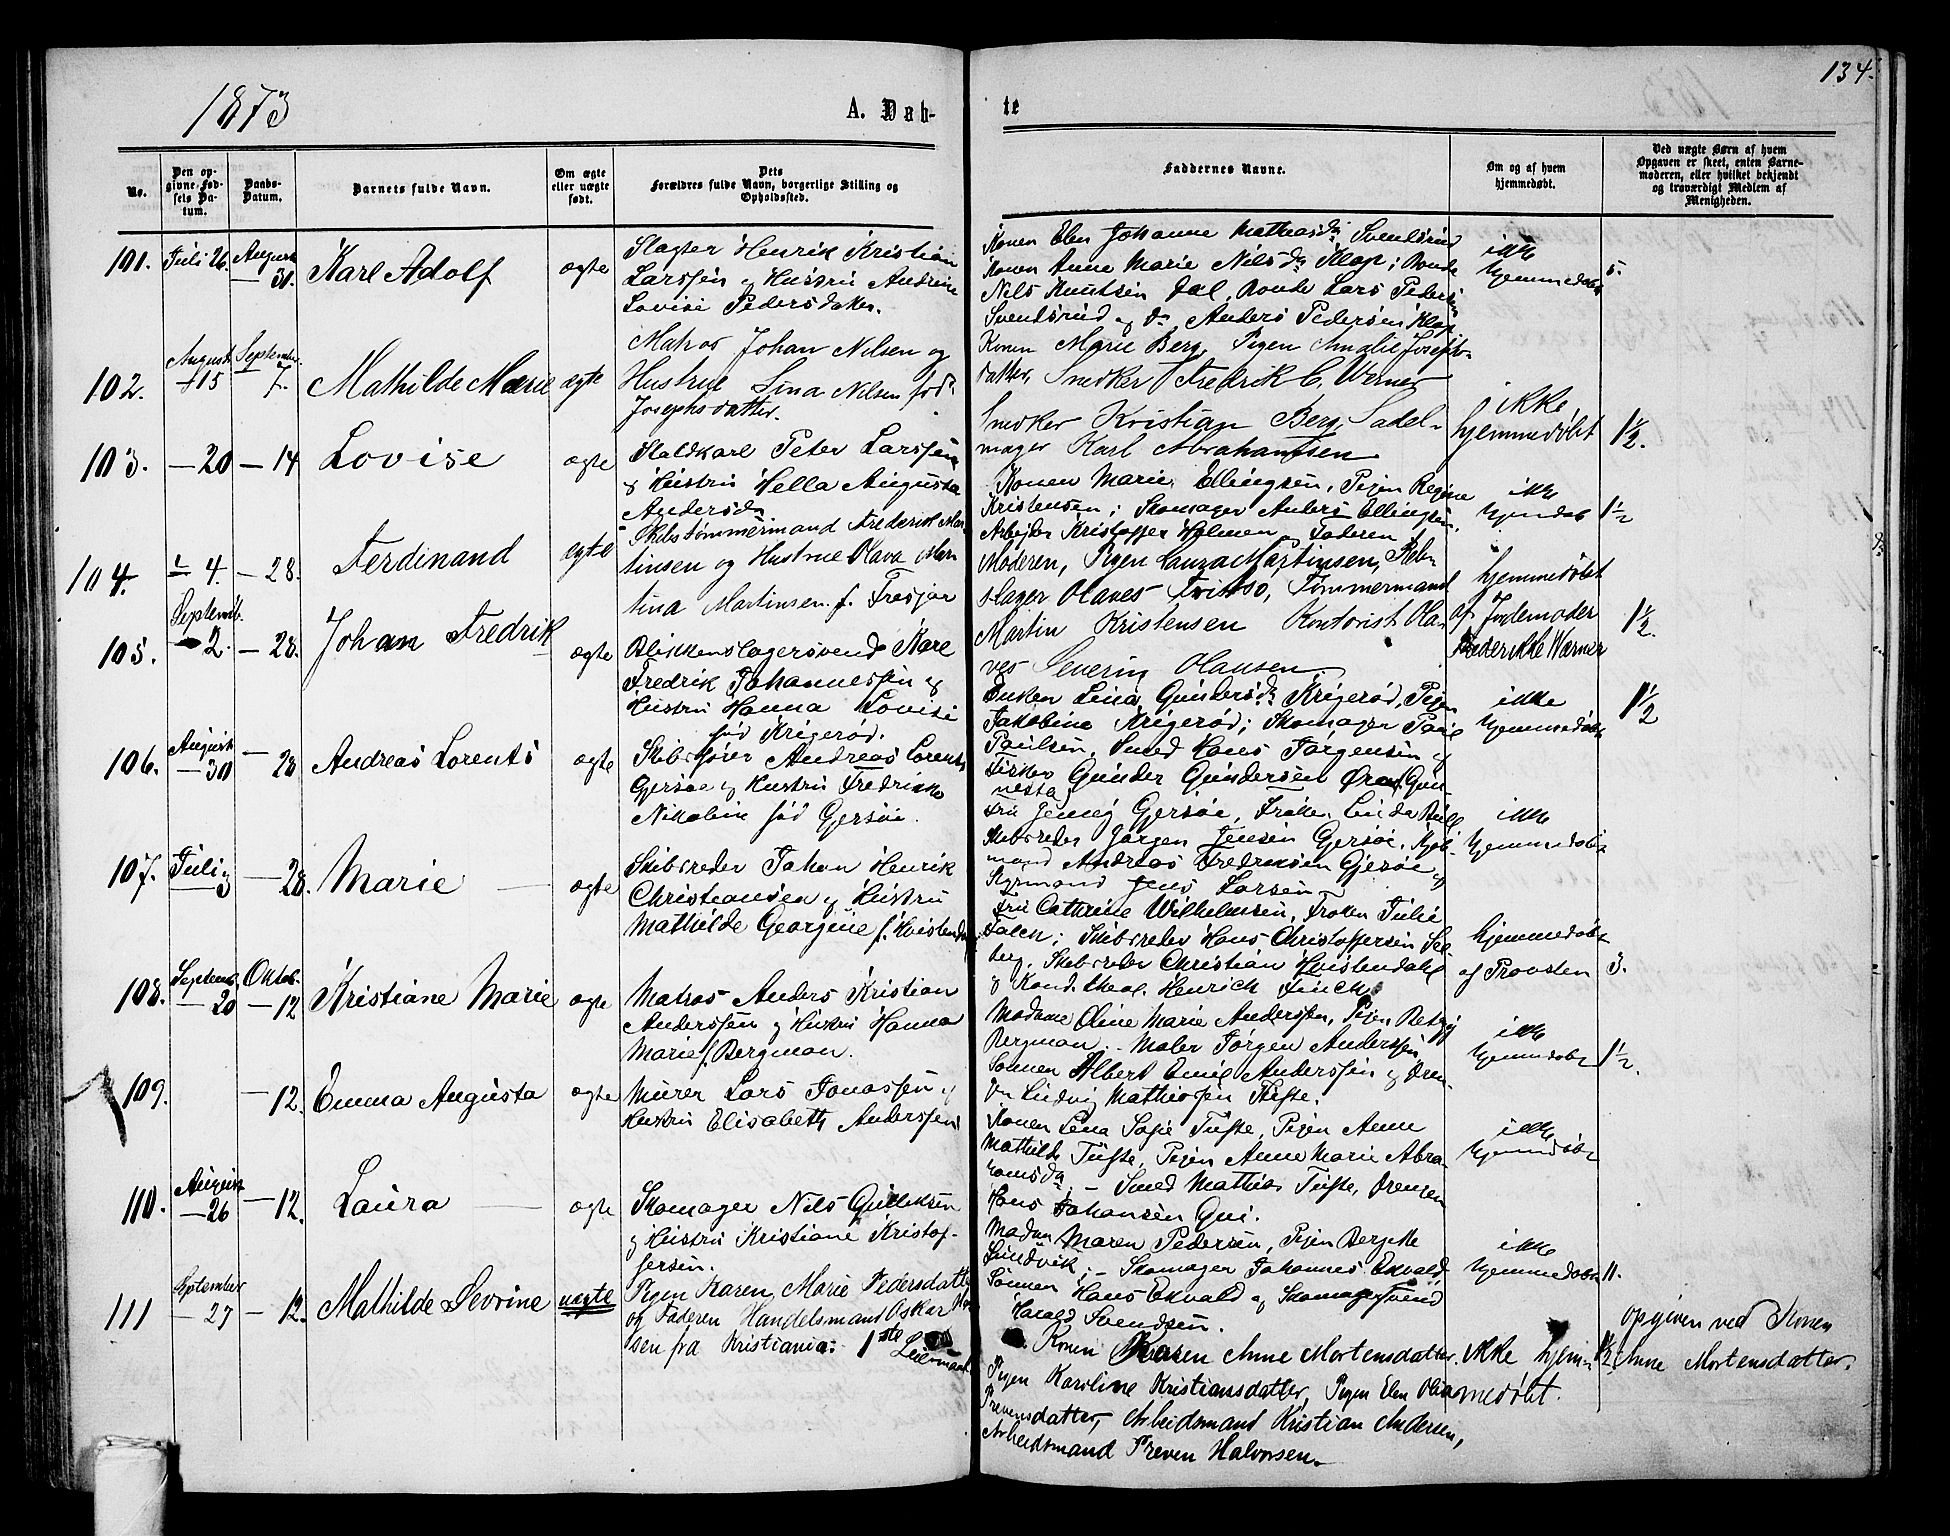 1873
A. Døb-
te
134.
No.
Den op-
givne Fød-
sels Da-
tum.
Daabs-
Datum.
Barnets fulde Navn.
Om ægte
eller uægte
født.
Dets
Forældres fulde Navn, borgerlige Stilling og
Opholdssted.
Faddernes Navne.
Om og af hvem
hjemmedøbt.
Ved uægte Børn af hvem
Opgaven er skeet, enten Barne-
moderen, eller hvilket bekjendt
og troværdigt Medlem af
Menigheden.
101. Juli 26. August 31. Karl Adolf ægte
Slagter Henrik Kristian
Larssen og Hustru Andrine
Lovise Pedersdatter.
Konen Elen Johanne Mathiasda Svendsrud
Konen Anne Marie Nilsda Klop; Bonde
Nils Knutsen Dal, Bonde Lars Pedersen
Svendsrud og do Anders Pedersen Klop
ikke
hjemmedøbt
5.
102. August 15 September 7. Mathilde Marie ægte
Matros Johan Nilsen og
Hustrue Lina Nilsen født
Josephsdatter.
Konen Marie Berg, Pigen Amalie Josephs-
datter, Snedker Fredrik C. Werner
Snedker Kristian Berg, Sadel-
mager Karl Abrahamsen
ikke
hjemmedøbt
1½.
103. — 20 — 14 Lovise ægte
Staldkarl Peter Larssen
og Hustru Hella Augusta
Andersda
Konen Marie Ellingsen, Pigen Regine
Kristensen; Skomager Anders Ellingsen,
Arbejder Kristoffer Holmen og Faderen
ikke
hjemdøb
1½
104. 4. — 28. Ferdinand ægte
Skibstømmermand Frederik Mar-
tinsen og Hustrue Olava Mar-
tina Martinsen f. Tresjør
Moderen, Pigen Laura Martinsen, Reb-
slager Olaves Frittsø, Tømmermand
Martin Kristensen Kontorist Ola-
ves Severin Olausen
hjemmedøbt
af Jordemoder
Frederikke Wærner
1½.
105. September 2. — 28. Johan Fredrik ægte
Blikkenslagersvend Karl
Fredrik Johannessen og
Hustru Hanna Lovise
fød Krigerød.
Enken Lina Gundersda Krigerød, Pigen
Jakobine Krigerød; Skomager Paul
Paulsen, Smed Hans Jørgensen og
Fisker Gunder Gundersen
ikke
hjemmedøbt
1½
106. August — 30 — 28 Andreas Lorents ægte
Andreas Lorents
Gjersøe og Hustru Fredrikke
Nikoline fød Gjersøe.
Fru Jenny Gjersøe, Frøken
Skibsreder Jørgen Jensen Gjersøe, Kjøb-
mand Andreas Fredriksen Gjersøe og
Styrmand Jens Larsen
ikke
hjemmedøbt
107. Juli 3 — 28. Marie — ægte
Skibsreder Johan Henrik
Christiansen og Hustru
Mathilde Georgine f. Hvistendahl
Fru Cathrine Wilhelmsen, Frøken Julie
Falch; Skibsreder Hans Christoffersen See-
berg, Skibsreder Christian Hvistendahl
og Kand. theol. Henrich Finch
hjemmedøbt
af Provsten
3.
108. Septemb. — 20 Oktob. — 12 Kristiane Marie ægte
Matros Anders Kristian
Anderssen og Hustru Hanna
Marie f. Bergman.
Madame Oline Marie Anderssen, Pigen Betzy
Bergman; — Maler Jørgen Anderssen
Sønnen Albert Emil Anderssen og Dren-
gen Ludvig Mathiasen Tufte.
ikke
hjemmedøbt
1½.
109. — 12. Emma Augusta ægte
Murer Lars Jonassen og
Hustru Elisabeth Anderssen
Konen Lena Sofie Tufte, Pigen Anne
Mathilde Tufte, Pigen Anne Marie Abra-
hamsda; — Smed Mathias Tufte, Drengen
Hans Johansen Gui.
ikke
hjemmedøbt
110. August — 26 — 12. Laura — ægte
Skomager Nils Gulliksen
og Hustru Kristiane Kristof-
fersen.
Madam Maren Pedersen, Pigen Bergitte
Sundvik; — Skomager Johannes Ekvald,
Sønnen Hans Ekvald og Skomagersvend
Harald Svendsen.
ikke
hjemmedøbt
11.
111 September — 27 — 12. Mathilde Sevrine uægte
Pigen Karen Marie Pedersdatter
og Faderen Handelsmand Oskar
sen fra Kristiania: 1ste Leiermaal
Konen Karen Anne Mortensdatter,
Pigen Karoline Kristiansdatter, Pigen Elen Olia
Prevensdatter, Arbeidsmand Kristian Andersen,
Arbeidsmand Preven Halvorsen.
Ikke hjem-
medøbt.
1½
opgiven ved Konen
Anne Mortensdatter.